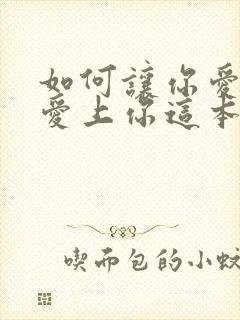 如何讓你愛
愛上你這本
喫而包的小蚊